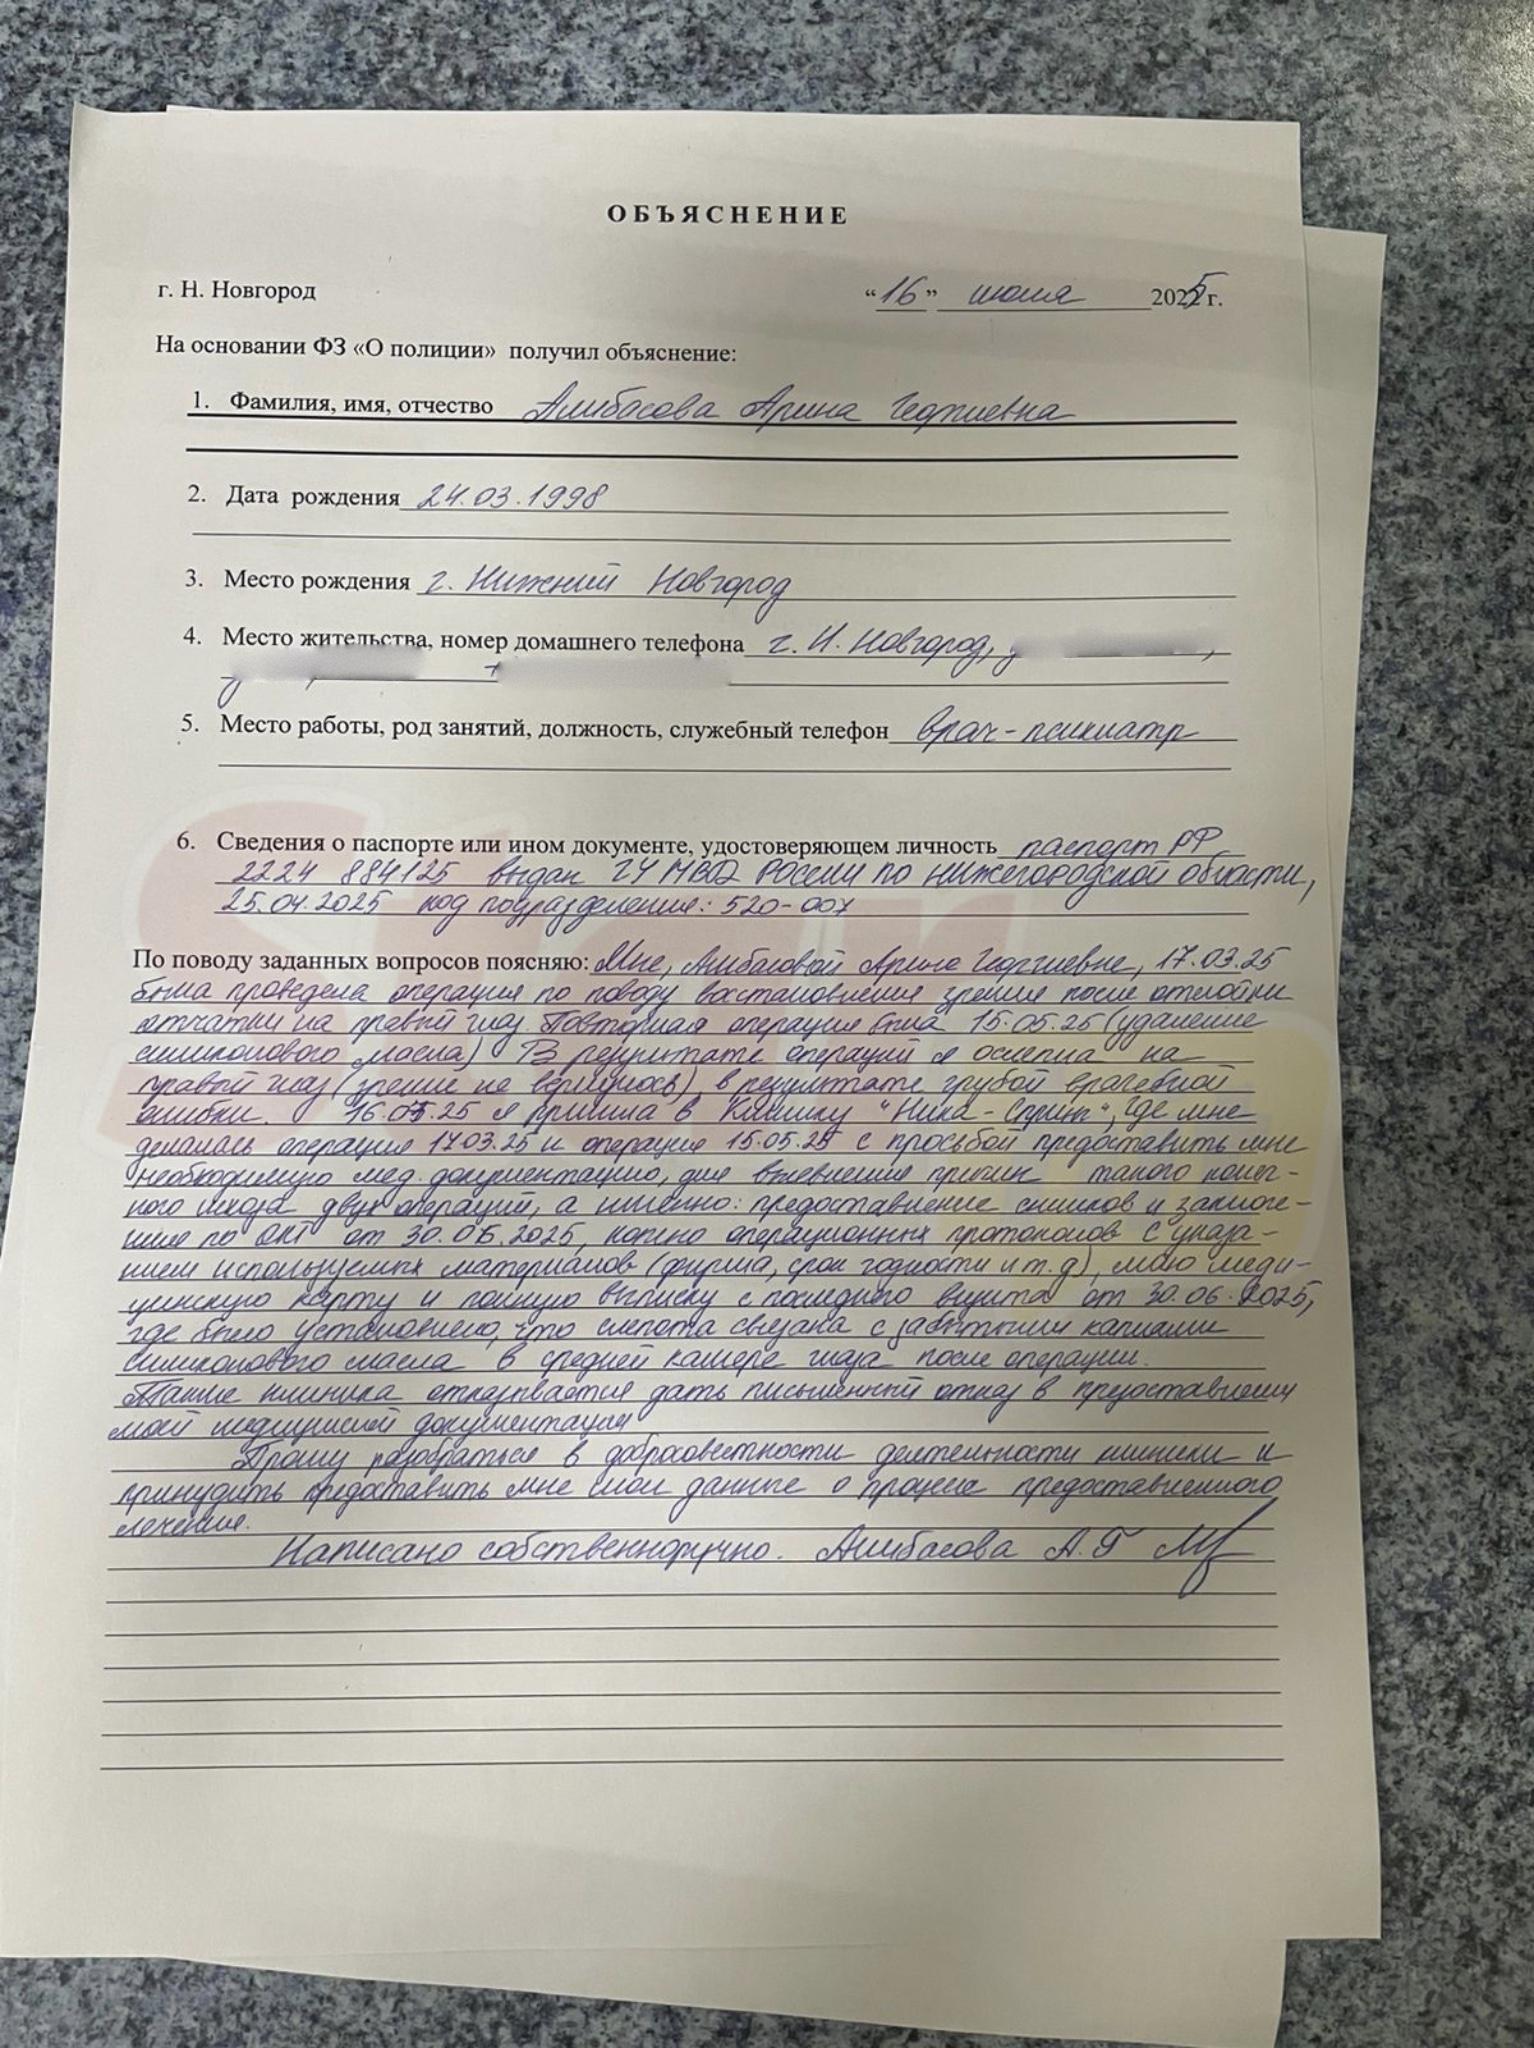 ОБЪЯСНЕНИЕ
г. Н. Новгород “16” июля 2025 г.
На основании ФЗ «О полиции» получил объяснение:
1. Фамилия, имя, отчество Алибасова Арина Георгиевна
2. Дата рождения 24.03.1998
3. Место рождения г. Нижний Новгород
4. Место жительства, номер домашнего телефона г. Н. Новгород,
5. Место работы, род занятий, должность, служебный телефон врач-психиатр
6. Сведения о паспорте или ином документе, удостоверяющем личность паспорт РФ
2224 884125 выдан ГУ МВД России по Нижегородской области,
25.04.2025 код подразделения: 520-007
По поводу заданных вопросов поясняю: Мне, Алибасовой Арине Георгиевне, 17.03.25
была проведена операция по поводу восстановления зрения после отслойки
сетчатки на правый глаз. Повторная операция была 15.05.25 (удаление
силиконового масла) В результате операций я ослепла на
правый глаз (зрение не вернулось), в результате грубой врачебной
ошибки. 16.07.25 я пришла в Клинику "Ника-Спринг", где мне
делалась операция 17.03.25 и операция 15.05.25 с просьбой предоставить мне
необходимую мед. документацию, для выявления причин такого
исхода двух операций, а именно: предоставление снимков и заключе-
ния по ОКТ от 30.06.2025, копию операционных протоколов с указа-
нием используемых материалов (фирма, срок годности и т.д), мою меди-
цинскую карту и полную выписку с последнего визита от 30.06.2025,
где было установлено, что слепота связана с забытыми каплями
силиконового масла в средней камере глаза после операции.
Также клиника отказывается дать письменный отказ в предоставлении
моей медицинской документации
Прошу разобраться в добросовестности деятельности клиники и
принудить предоставить мне мои данные о процессе предоставленного
лечения.
Написано собственноручно. Алибасова А.Г